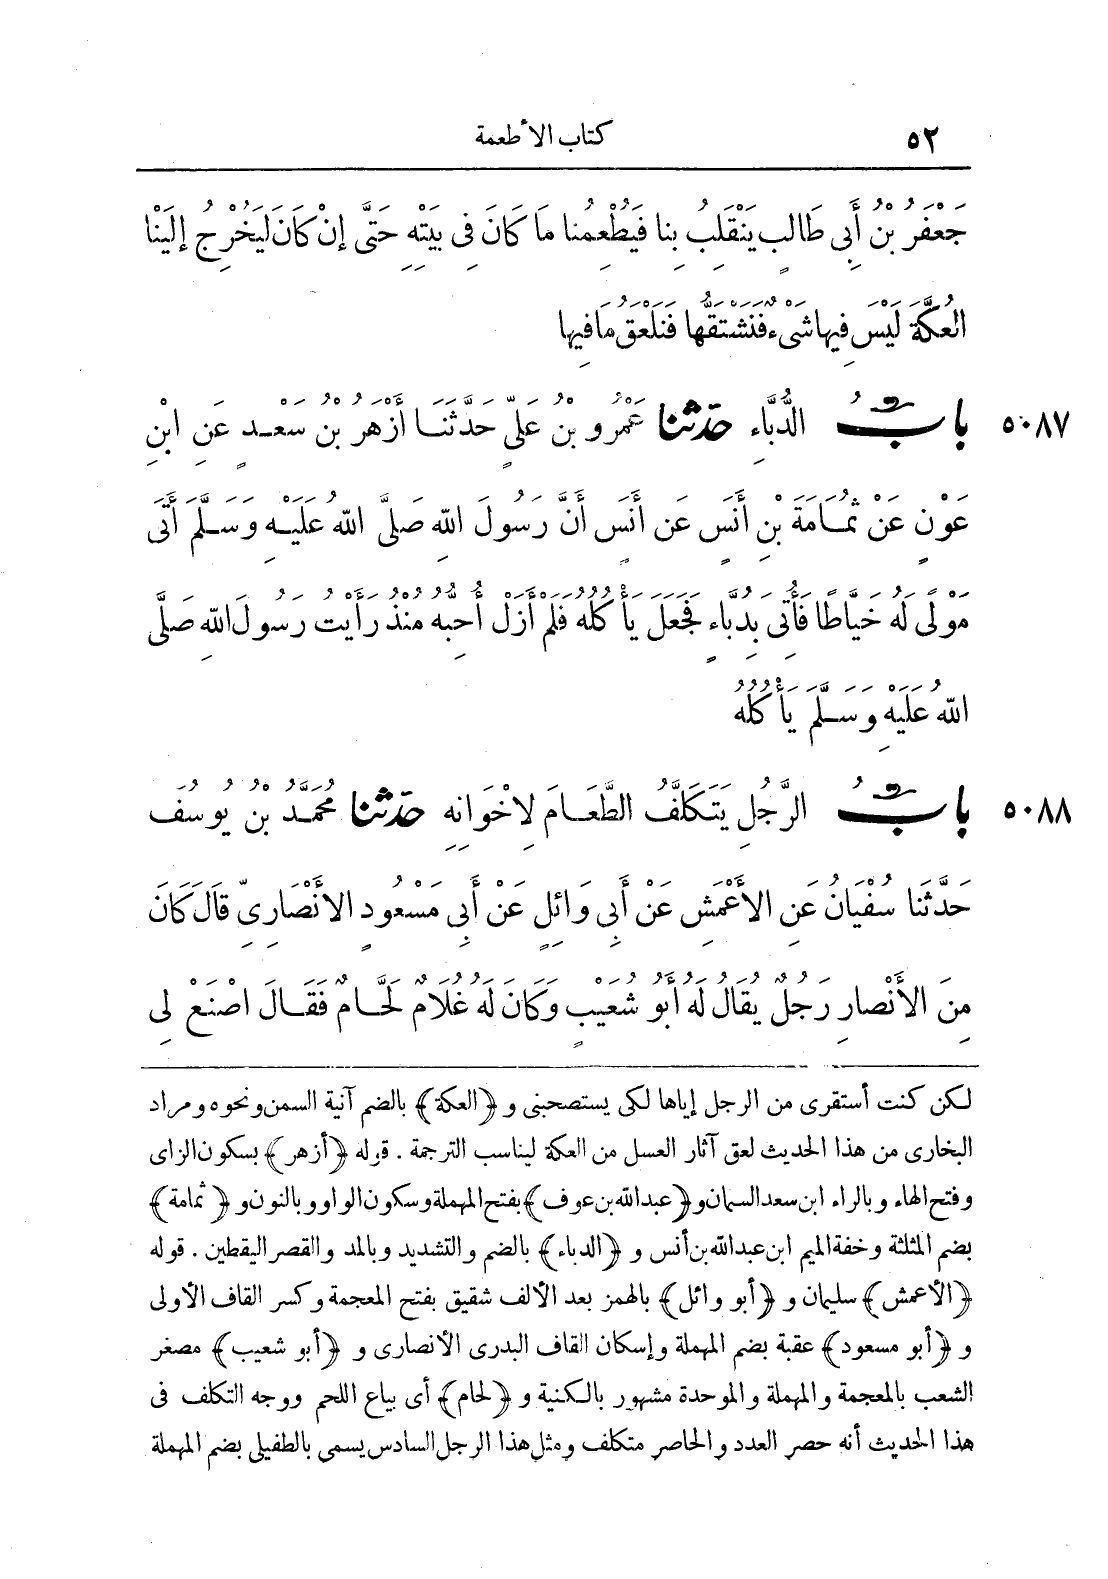 ٥٢ كتاب الأطعمة
جَعْفَرُ بْنُ أَبِى طَالِبٍ يَنْقَلِبُ بِنَا فَيُطْعِمُنَا مَا كَانَ فِى بَيْتِهِ حَتَّى إِنْ كَانَ لَيُخْرِجُ إِلَيْنَا
الْعُكَّةَ لَيْسَ فِيهَا شَىْءٌ فَنَشْتَقُّهَا فَنَلْعَقُ مَا فِيهَا
٥٠٨٧ بَابُ الدُّبَّاءِ حَدَّثَنَا عَمْرُو بْنُ عَلِىٍّ حَدَّثَنَا أَزْهَرُ بْنُ سَعْدٍ عَنِ ابْنِ
عَوْنٍ عَنْ ثُمَامَةَ بْنِ أَنَسٍ عَنْ أَنَسٍ أَنَّ رَسُولَ اللهِ صَلَّى اللهُ عَلَيْهِ وَسَلَّمَ أَتَى
مَوْلًى لَهُ خَيَّاطًا فَأُتِىَ بِدُبَّاءٍ فَجَعَلَ يَأْكُلُهُ فَلَمْ أَزَلْ أُحِبُّهُ مُنْذُ رَأَيْتُ رَسُولَ اللهِ صَلَّى
اللهُ عَلَيْهِ وَسَلَّمَ يَأْكُلُهُ
٥٠٨٨ بَابُ الرَّجُلِ يَتَكَلَّفُ الطَّعَامَ لِإِخْوَانِهِ حَدَّثَنَا مُحَمَّدُ بْنُ يُوسُفَ
حَدَّثَنَا سُفْيَانُ عَنِ الأَعْمَشِ عَنْ أَبِى وَائِلٍ عَنْ أَبِى مَسْعُودٍ الأَنْصَارِىِّ قَالَ كَانَ
مِنَ الأَنْصَارِ رَجُلٌ يُقَالُ لَهُ أَبُو شُعَيْبٍ وَكَانَ لَهُ غُلَامٌ لَحَّامٌ فَقَالَ اصْنَعْ لِى
لكن كنت أستقرى من الرجل إياها لكى يستصحبنى و ﴿العكة﴾ بالضم آنية السمن ونحوه ومراد
البخارى من هذا الحديث لعق آثار العسل من العكة ليناسب الترجمة . قوله ﴿أزهر﴾ بسكون الزاى
وفتح الهاء وبالراء ابن سعد السمان و ﴿عبد الله بن عوف﴾ بفتح المهملة وسكون الواو وبالنون و ﴿ثمامة﴾
بضم المثلثة وخفة الميم ابن عبد الله بن أنس و ﴿الدباء﴾ بالضم والتشديد وبالمد والقصر اليقطين . قوله
﴿الأعمش﴾ سليمان و ﴿أبو وائل﴾ بالهمز بعد الألف شقيق بفتح المعجمة وكسر القاف الأولى
و ﴿أبو مسعود﴾ عقبة بضم المهملة وإسكان القاف البدرى الأنصارى و ﴿أبو شعيب﴾ مصغر
الشعب بالمعجمة والمهملة والموحدة مشهور بالكنية و ﴿لحام﴾ أى بياع اللحم ووجه التكلف فى
هذا الحديث أنه حصر العدد والحاصر متكلف ومثل هذا الرجل السادس يسمى بالطفيلى بضم المهملة